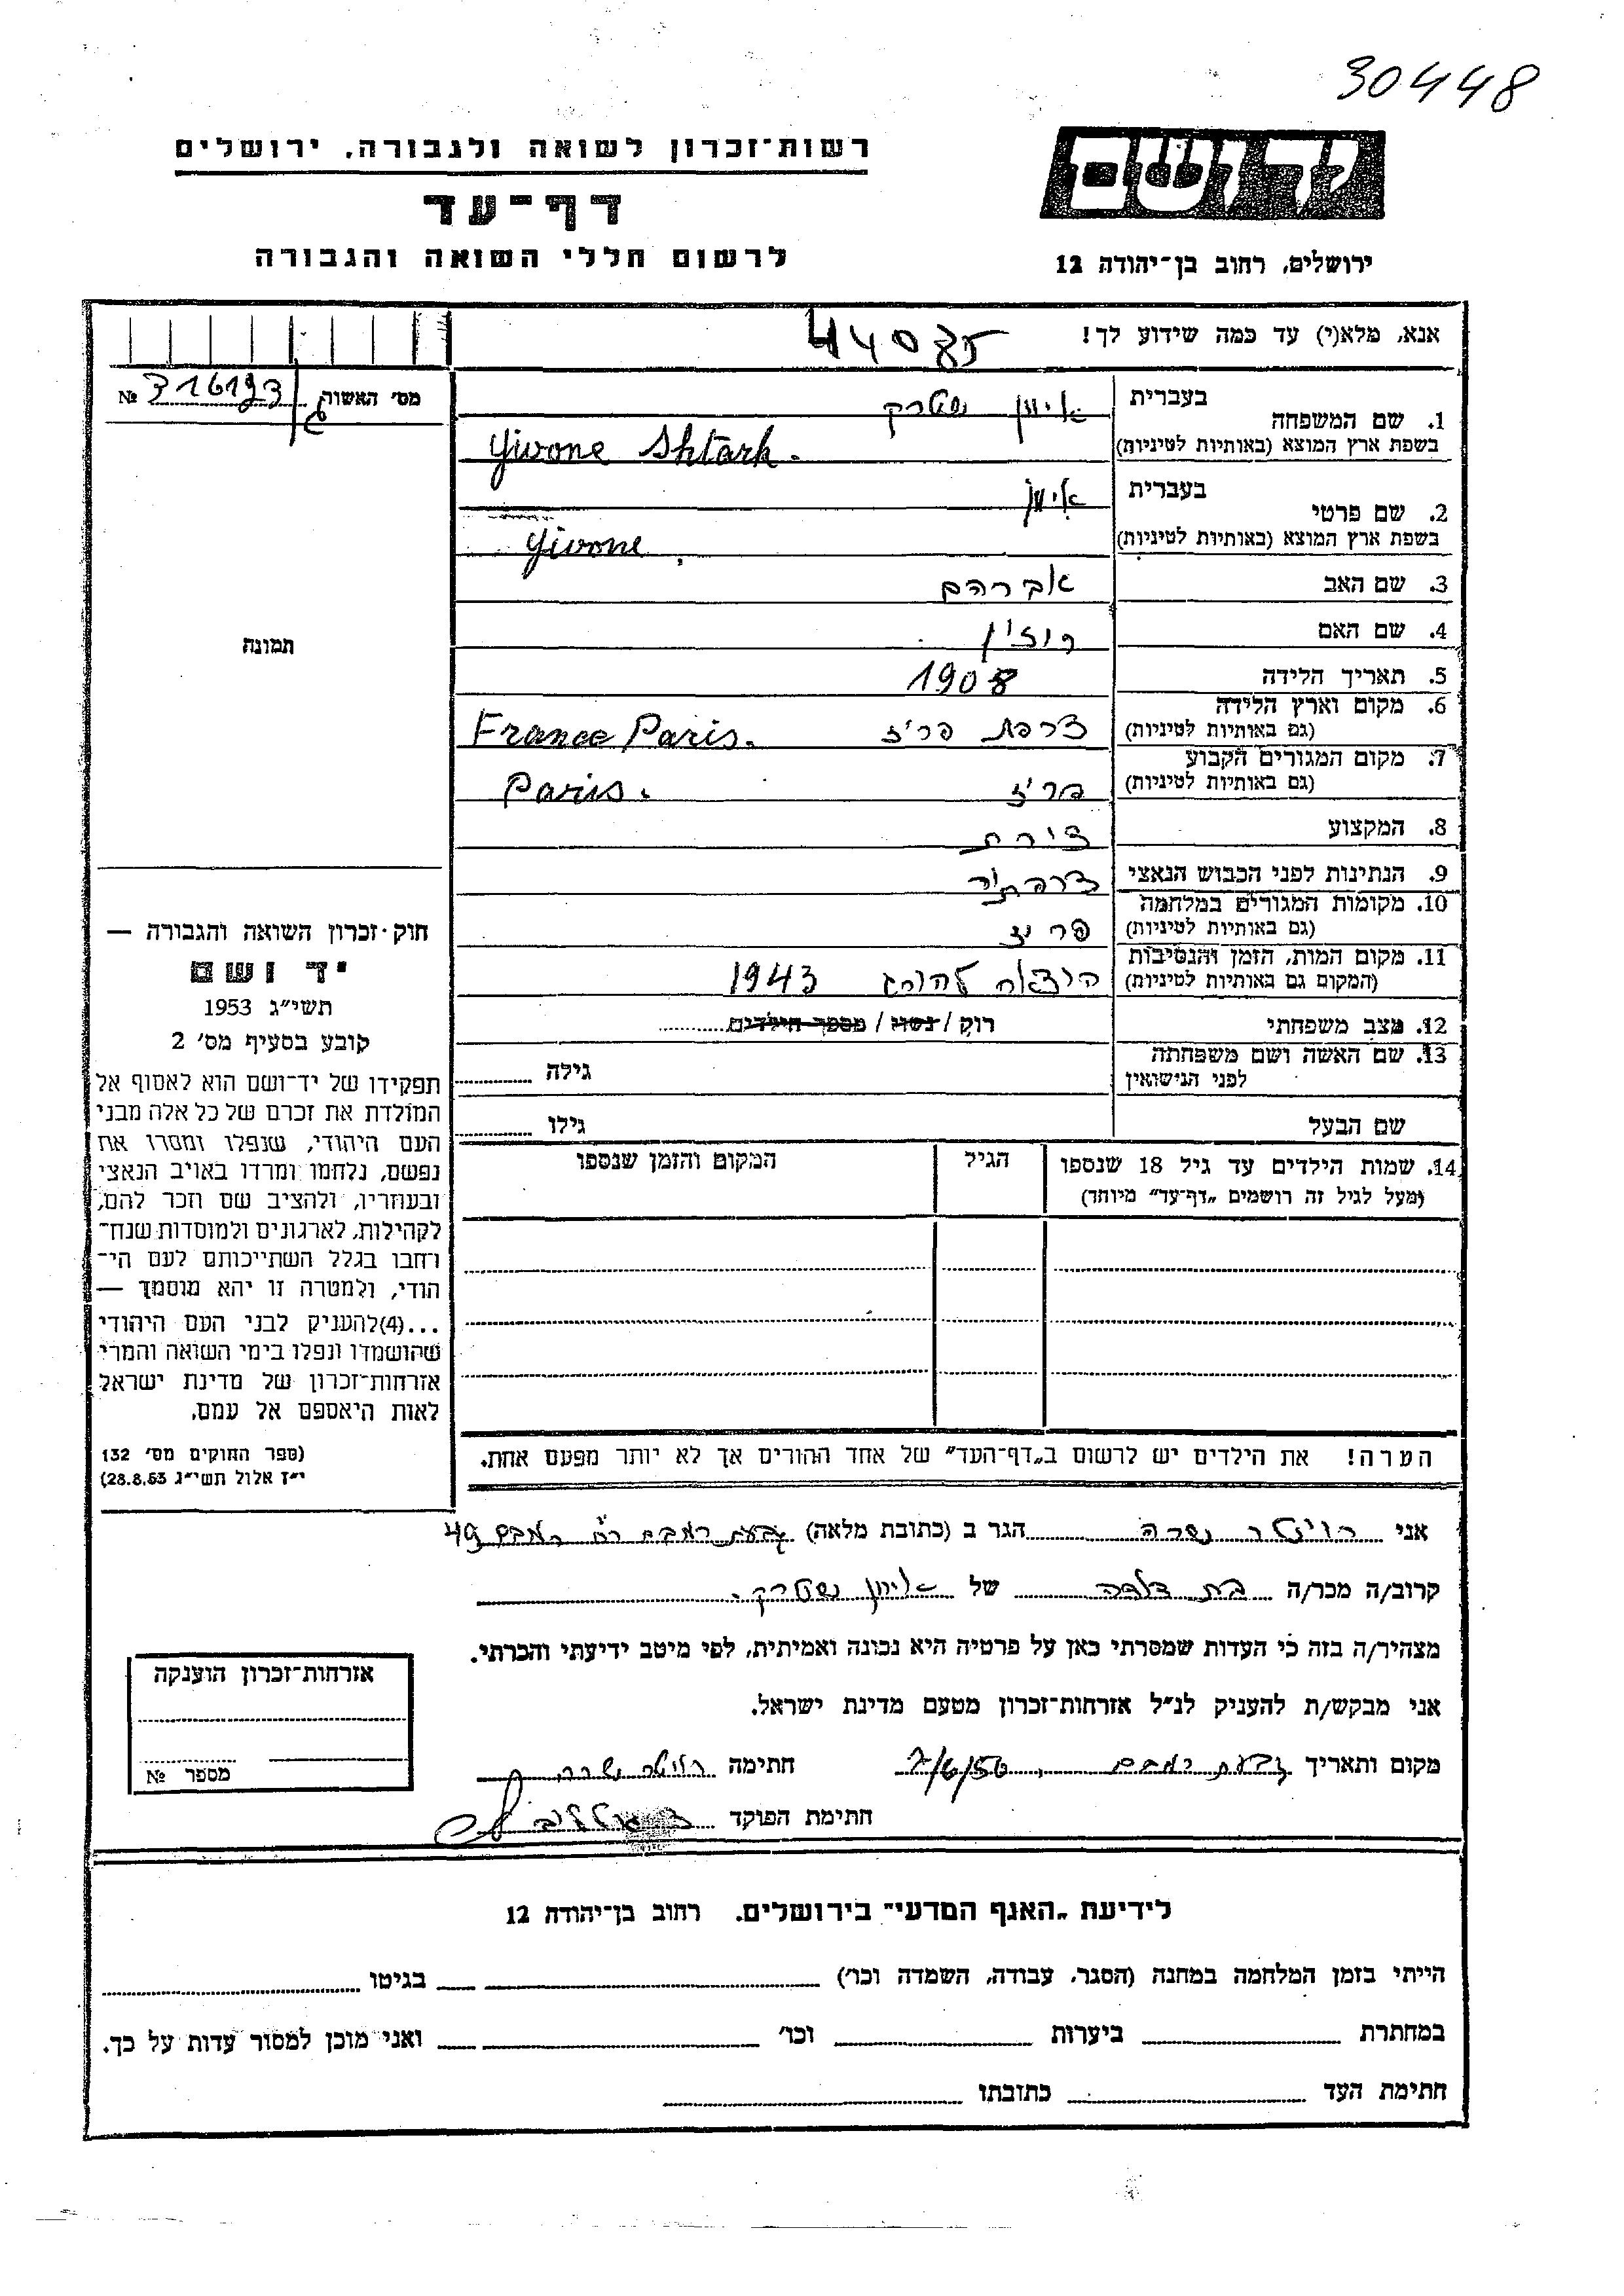 30448
יד ושם
רשות־זכרון לשואה ולגבורה, ירושלים
דף־עד
לרשום חללי השואה והגבורה
ירושלים, רחוב בן־יהודה 12
אנא, מלא(י) עד כמה שידוע לך!
44085
מס׳ האשור 316193 №
בעברית
1. שם המשפחה
בשפת ארץ המוצא (באותיות לטיניות)
איוון שטרק
Yivone Shtark.
בעברית
2. שם פרטי
בשפת ארץ המוצא (באותיות לטיניות)
איוון
Yivone
3. שם האב אברהם
4. שם האם רוזין
5. תאריך הלידה 1908
6. מקום וארץ הלידה
(גם באותיות לטיניות)
צרפת פריז France Paris.
7. מקום המגורים הקבוע
(גם באותיות לטיניות)
פריז Paris.
8. המקצוע ציירת
9. הנתינות לפני הכבוש הנאצי
10. מקומות המגורים במלחמה
(גם באותיות לטיניות)
פריז
11. מקום המות, הזמן והנסיבות
(המקום גם באותיות לטיניות)
הוצאה להורג 1943
12. מצב משפחתי רוק / נשוי / מספר הילדים
13. שם האשה ושם משפחתה
לפני הנישואין
גילה
שם הבעל גילו
14. שמות הילדים עד גיל 18 שנספו
(מעל לגיל זה רושמים „דף־עד״ מיוחד)
הגיל
המקום והזמן שנספו
הערה! את הילדים יש לרשום ב„דף־העד״ של אחד ההורים אך לא יותר מפעם אחת.
תמונה
חוק זכרון השואה והגבורה —
יד ושם
תשי״ג 1953
קובע בסעיף מס׳ 2
תפקידו של יד־ושם הוא לאסוף אל
המולדת את זכרם של כל אלה מבני
העם היהודי, שנפלו ומסרו את
נפשם, נלחמו ומרדו באויב הנאצי
ובעוזריו, ולהציב שם וזכר להם,
לקהילות, לארגונים ולמוסדות שנח־
רחבו בגלל השתייכותם לעם הי־
הודי, ולמטרה זו יהא מוסמך —
...(4)להעניק לבני העם היהודי
שהושמדו ונפלו בימי השואה והמרי
אזרחות־זכרון של מדינת ישראל
לאות היאספם אל עמם.
(ספר החוקים מס׳ 132
י״ז אלול תשי״ג 28.8.53)
אני רויטר שרה הגר ב (כתובת מלאה) גבעת רמב״ם רח רמבם 49
קרוב/ה מכר/ה בת דודה של איוון שטרק.
מצהיר/ה בזה כי העדות שמסרתי כאן על פרטיה היא נכונה ואמיתית, לפי מיטב ידיעתי והכרתי.
אני מבקש/ת להעניק לנ״ל אזרחות־זכרון מטעם מדינת ישראל.
מקום ותאריך גבעת רמבם, 7/6/56 חתימה רויטר שרה
חתימת הפוקד
אזרחות־זכרון הוענקה
מספר №
לידיעת „האגף המדעי״ בירושלים. רחוב בן־יהודה 12
הייתי בזמן המלחמה במחנה (הסגר, עבודה, השמדה וכו׳) בגיטו
במחתרת ביערות וכו׳ ואני מוכן למסור עדות על כך.
חתימת העד כתובתו